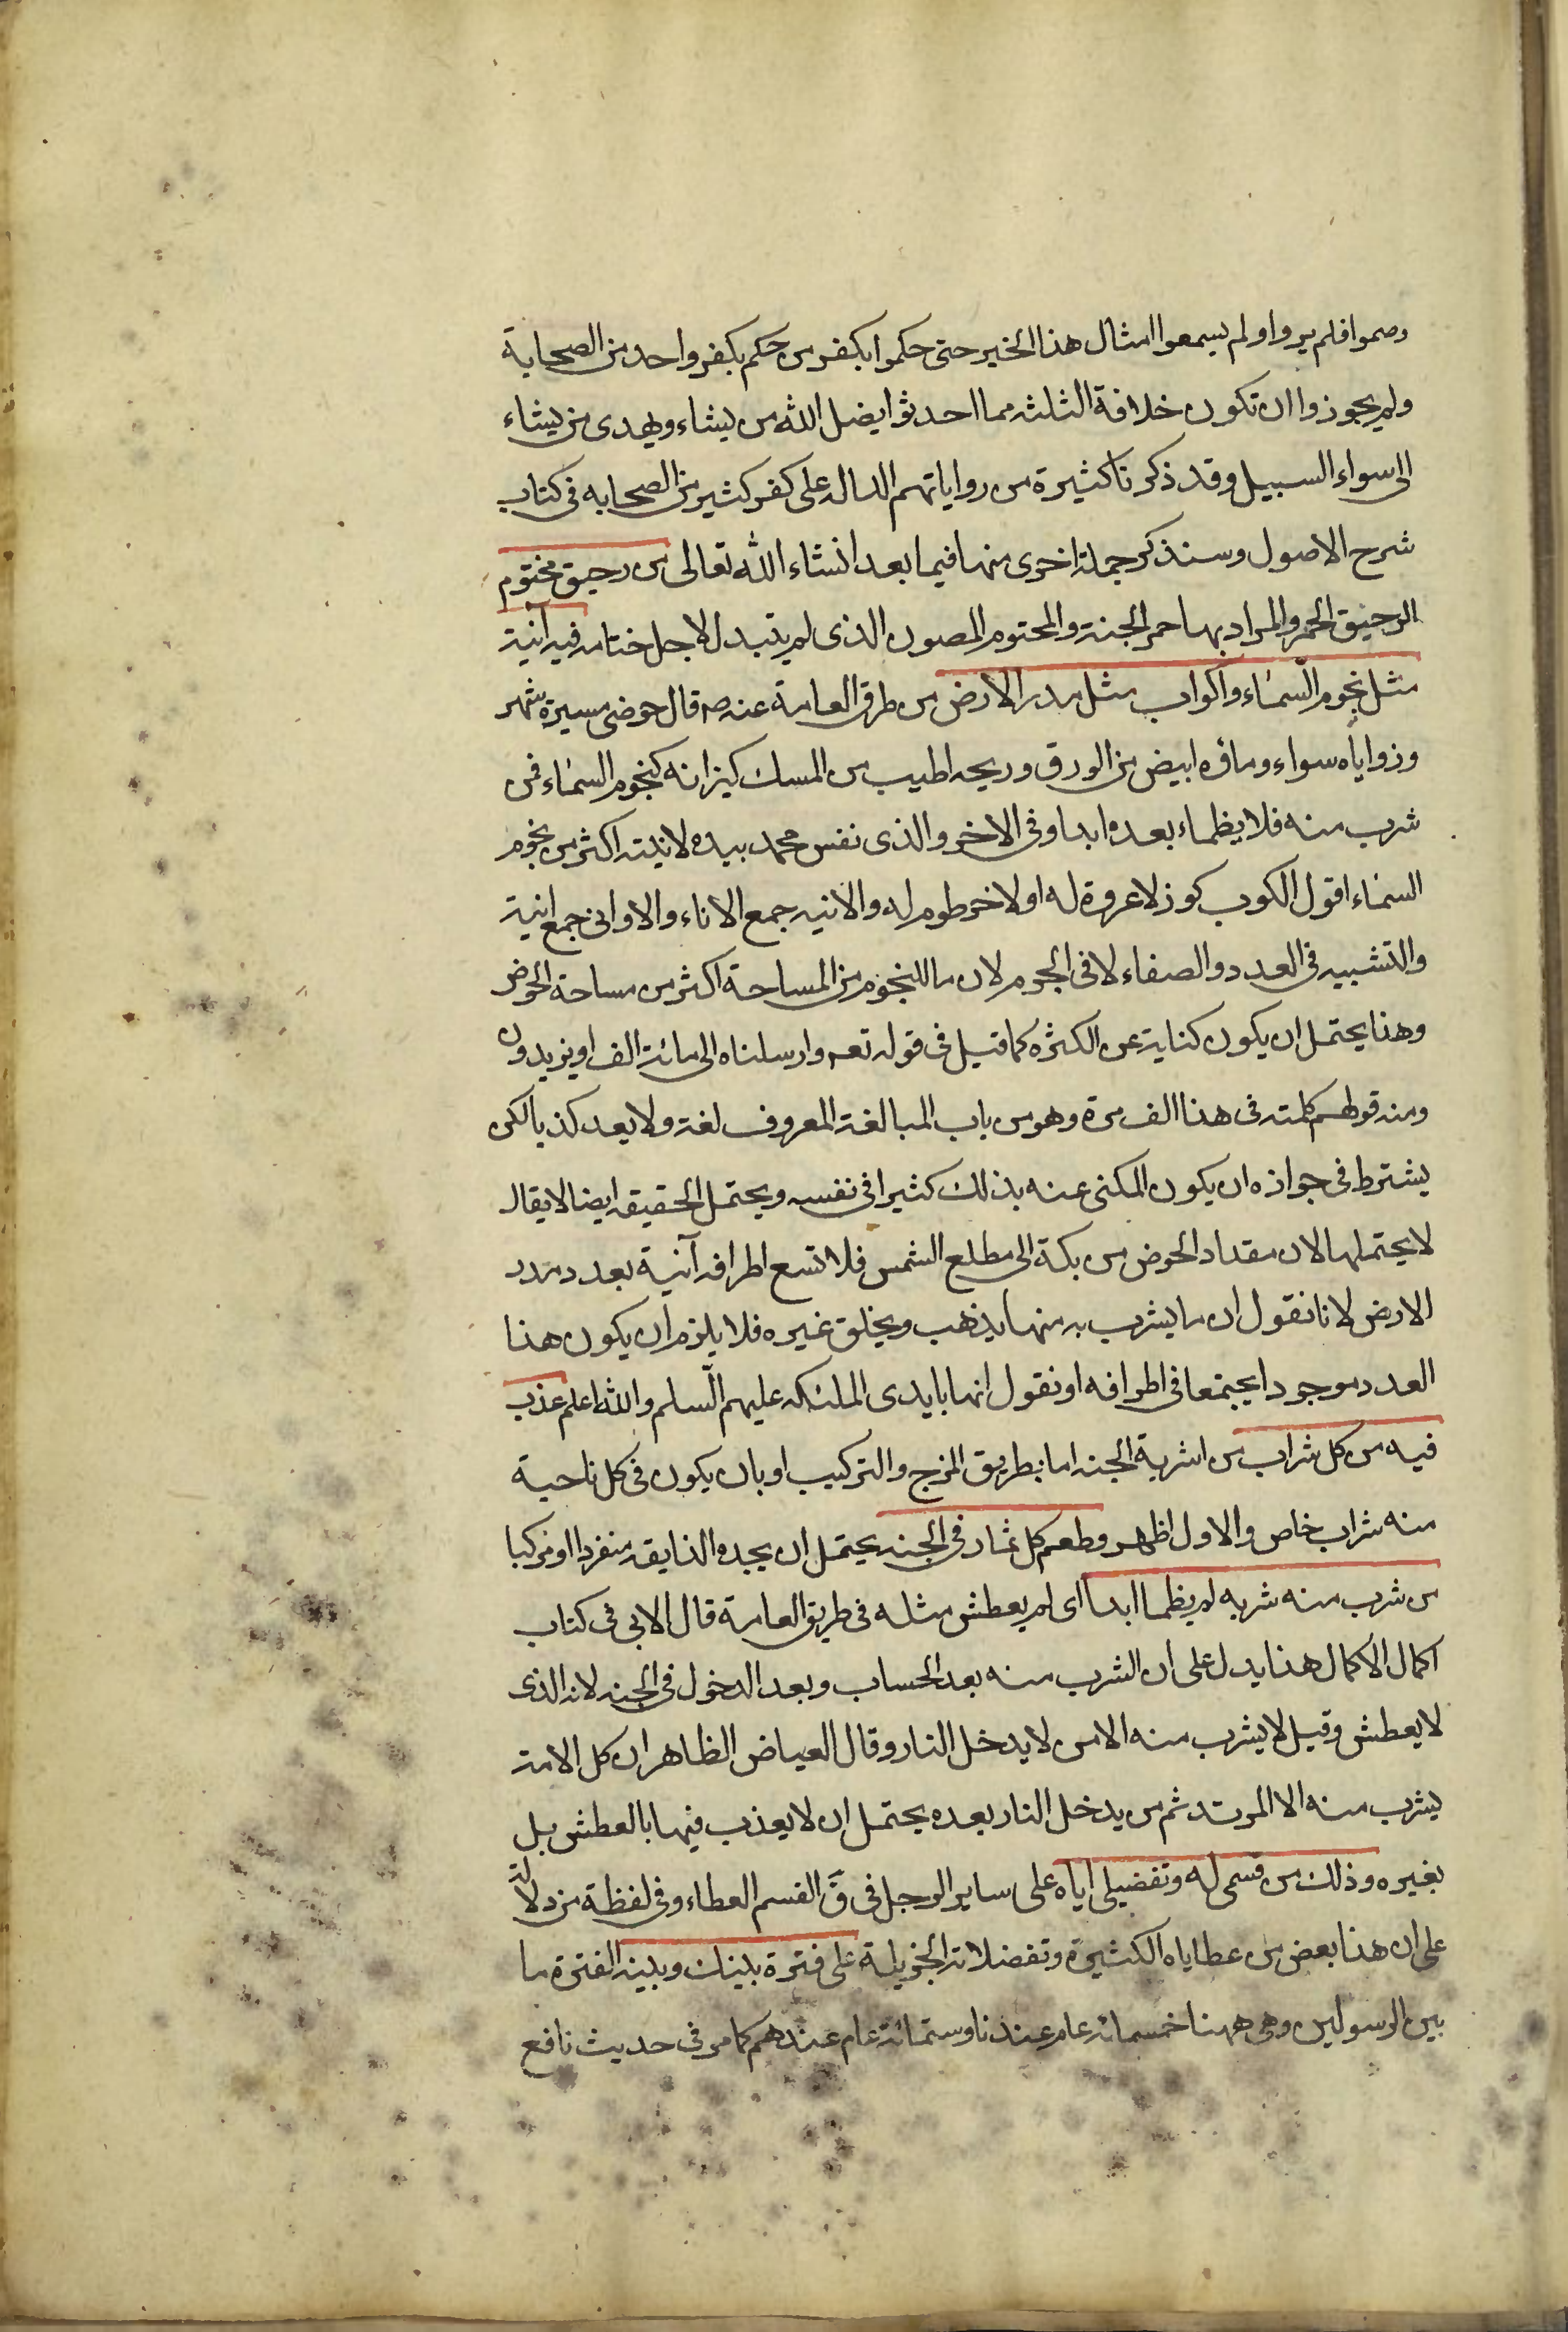 وصموا فلم يروا ولم يسمعوا امثال هذا الخبر حتى حكموا بكفر من حكم بكفر واحد من الصحابة
ولم يجوزوا ان تكون خلافة الثلثه مما احدثوا يضل الله من يشاء ويهدى من يشاء
الى سواء السبيل وقد ذكرنا كثيرة من رواياتهم الداله على كفر كثير من الصحابه فى كتاب
شرح الاصول وسنذكر جملة اخرى منها فيما بعد انشاء الله تعالى من رحيق مختوم
الرحيق الخمر والمراد بها خمر الجنة والمختوم المصون الذى لم يتبدل لاجل ختامه فيه آنية
مثل نجوم السماء واكواب مثل مدر الارض من طرق العامة عنه ص قال حوضى مسيرة شهر
وزواياه سواء وماؤه ابيض من الورق وريحه اطيب من المسك كيزانه كنجوم السماء فمن
شرب منه فلا يظماء بعده ابدا وفى الاخر والذى نفس محمد بيده لانيته اكثر من نجوم
السماء اقول الكوب كوز لا عروة له او لا خرطوم له والانيه جمع الاناء والاوانى جمع انية
والتشبيه فى العدد والصفاء لا فى الجرم لان ما للنجوم من المساحة اكثر من مساحة الحوض
وهذا يحتمل ان يكون كناية عن الكثره كما قيل فى قوله تعه وارسلناه الى مائة الف او يزيدون
ومنه قولهم كلمته فى هذا الف مرة وهو من باب المبالغة المعروف لغة ولا يعد كذبا لكن
يشترط فى جوازه ان يكون المكنى عنه بذلك كثيرا فى نفسه ويحتمل الحقيقه ايضا لا يقال
لا يحتملها لان مقدار الحوض من بكة الى مطلع الشمس فلا تسع اطرافه آنية بعدد مدر
الارض لانا نقول ان ما يشرب به منها يذهب ويخلق غيره فلا يلزم ان يكون هذا
العدد موجودا يجتمعا فى اطرافه او نقول انها بايدى الملئكه عليهم السلم والله اعلم عذب
فيه من كل شراب من اشربة الجنه اما بطريق المزج والتركيب او بان يكون فى كل ناحية
منه شراب خاص والاول اظهر وطعم كل ثمار فى الجنه يحتمل ان يجده الذايقه منفردا او مركبا
من شرب منه شربه لم يظما ابدا اى لم يعطش مثله فى طريق العامة قال الابى فى كتاب
اكمال الاكمال هذا يدل على ان الشرب منه بعد الحساب وبعد الدخول فى الجنه لانه الذى
لا يعطش وقيل لا يشرب منه الا من لا يدخل النار وقال العياض الظاهر ان كل الامة
يشرب منه الا المرتد ثم من يدخل النار بعده يحتمل ان لا يعذب فيها بالعطش بل
بغيره وذلك من قسمى له وتفضيلى اياه على ساير الرجل فى ق القسم العطاء وفى لفظة من دلالة
على ان هذا بعض من عطاياه الكثيرة وتفضلاته الجزيلة على فترة بينك وبينه الفترة ما
بين الرسولين وهى ههنا خمسمائه عام عندنا وستمائة عام عندهم كما مر فى حديث نافع